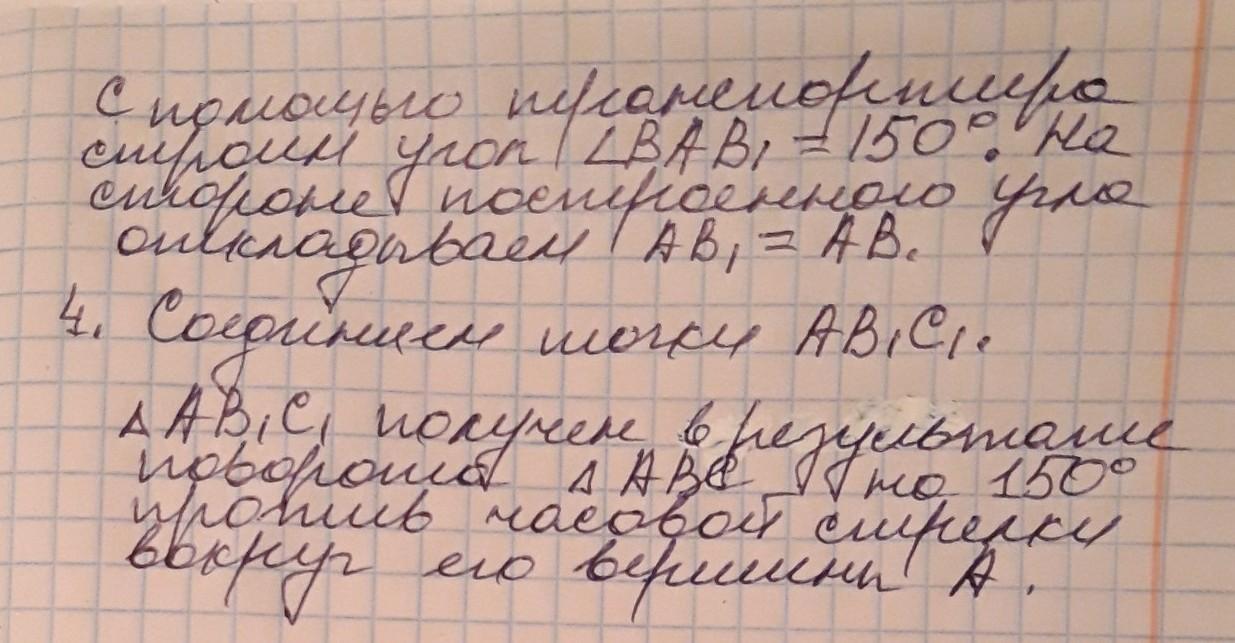 С помощью транспортира
строим угол ∠BAB₁ = 150°. На
стороне построенного угла
откладываем AB₁ = AB.
4. Соединяем точки AB₁C₁.
△ AB₁C₁ получен в результате
поворота △ ABC на 150°
против часовой стрелки
вокруг его вершины A.